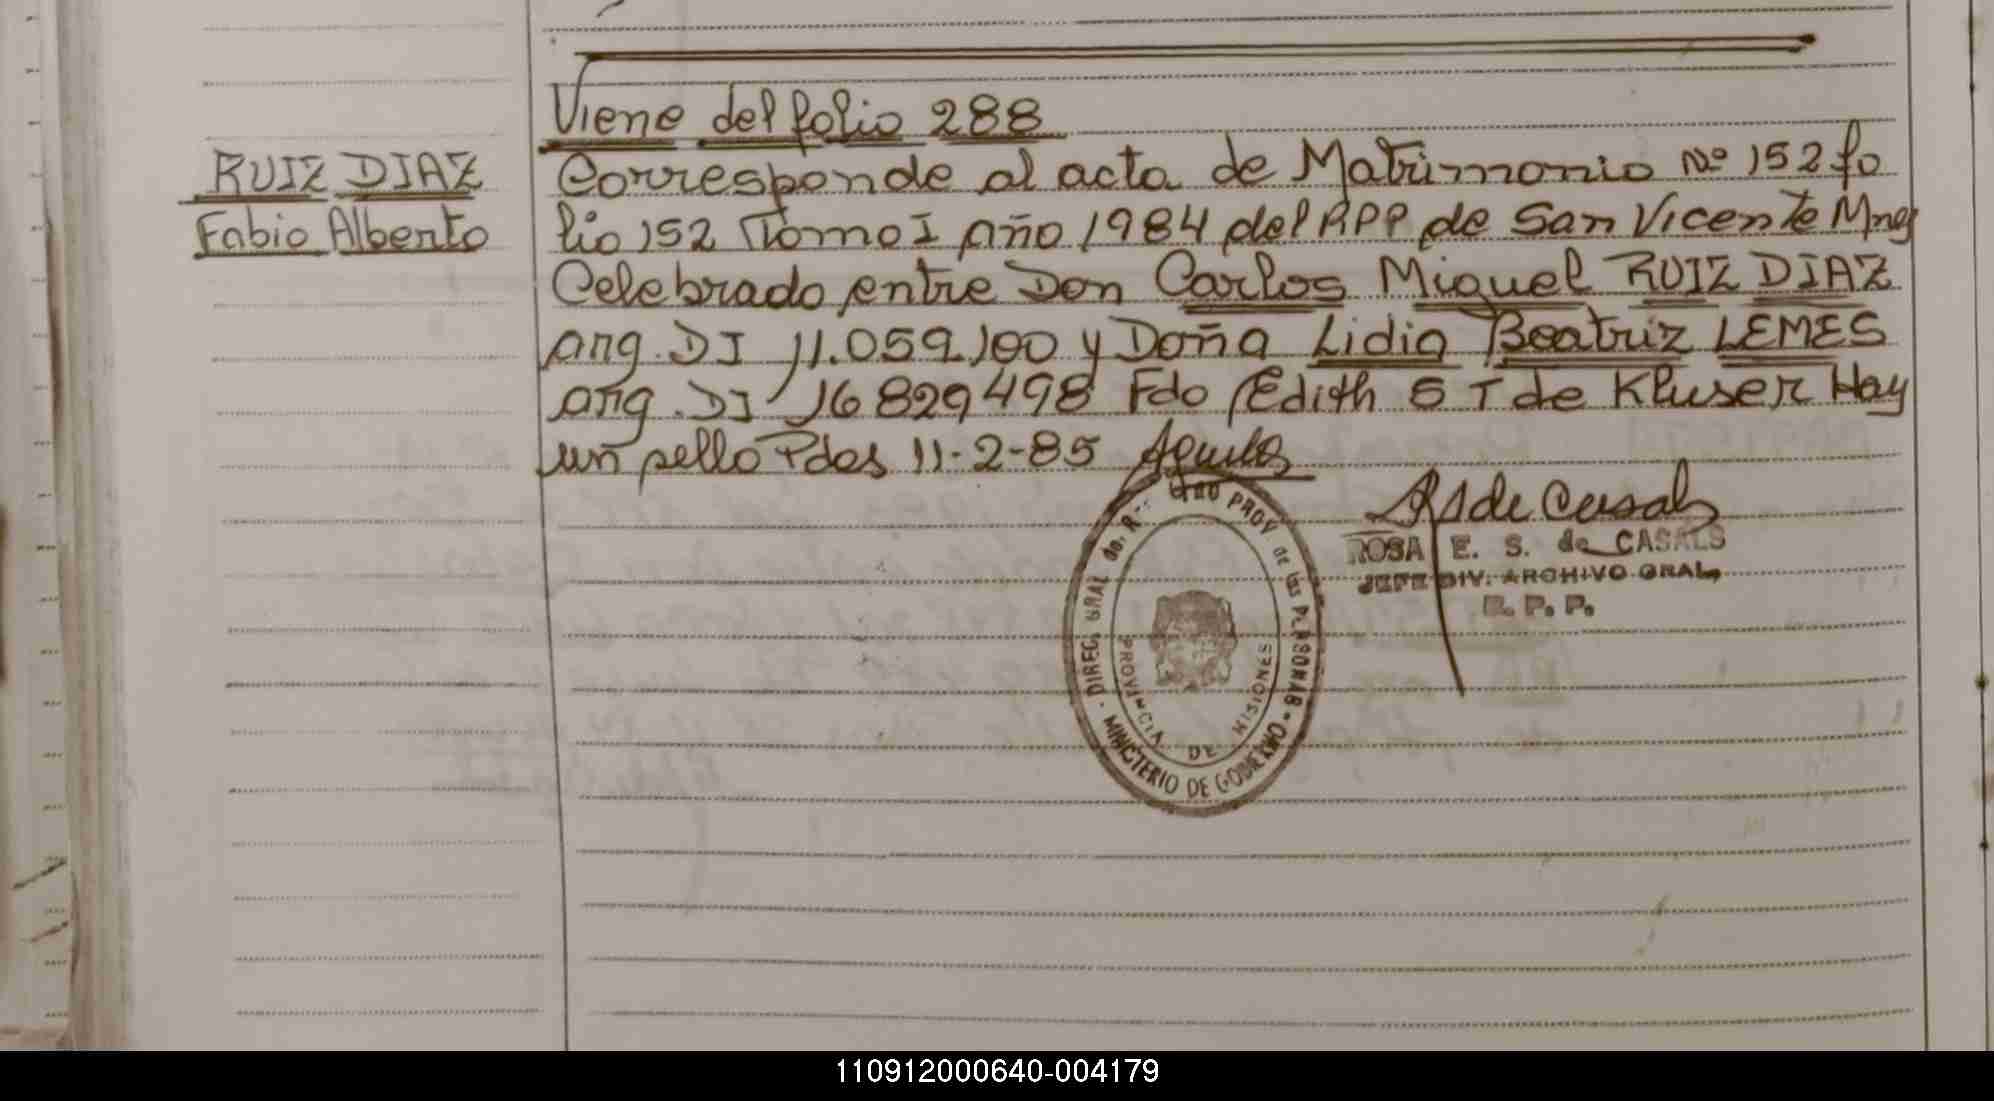 Viene del folio 288
RUIZ DIAZ
Fabio Alberto
Corresponde al acta de Matrimonio Nº 152 fo
lio 152 Tomo I Año 1984 del RPP de San Vicente Mnes
Celebrado entre Don Carlos Miguel RUIZ DIAZ
arg. DI 11.059.100 y Doña Lidia Beatriz LEMES
arg. DI 16829498 Fdo Edith S T de Kluser Hay
un sello Pdas 11-2-85
de Casals
ROSA E. S. de CASALS
JEFE DIV. ARCHIVO GRAL.
R. P. P.
DIREC. GRAL de. R. PROV de las PERSONAS - MINISTERIO DE GOBIERNO -
PROVINCIA DE MISIONES
110912000640-004179